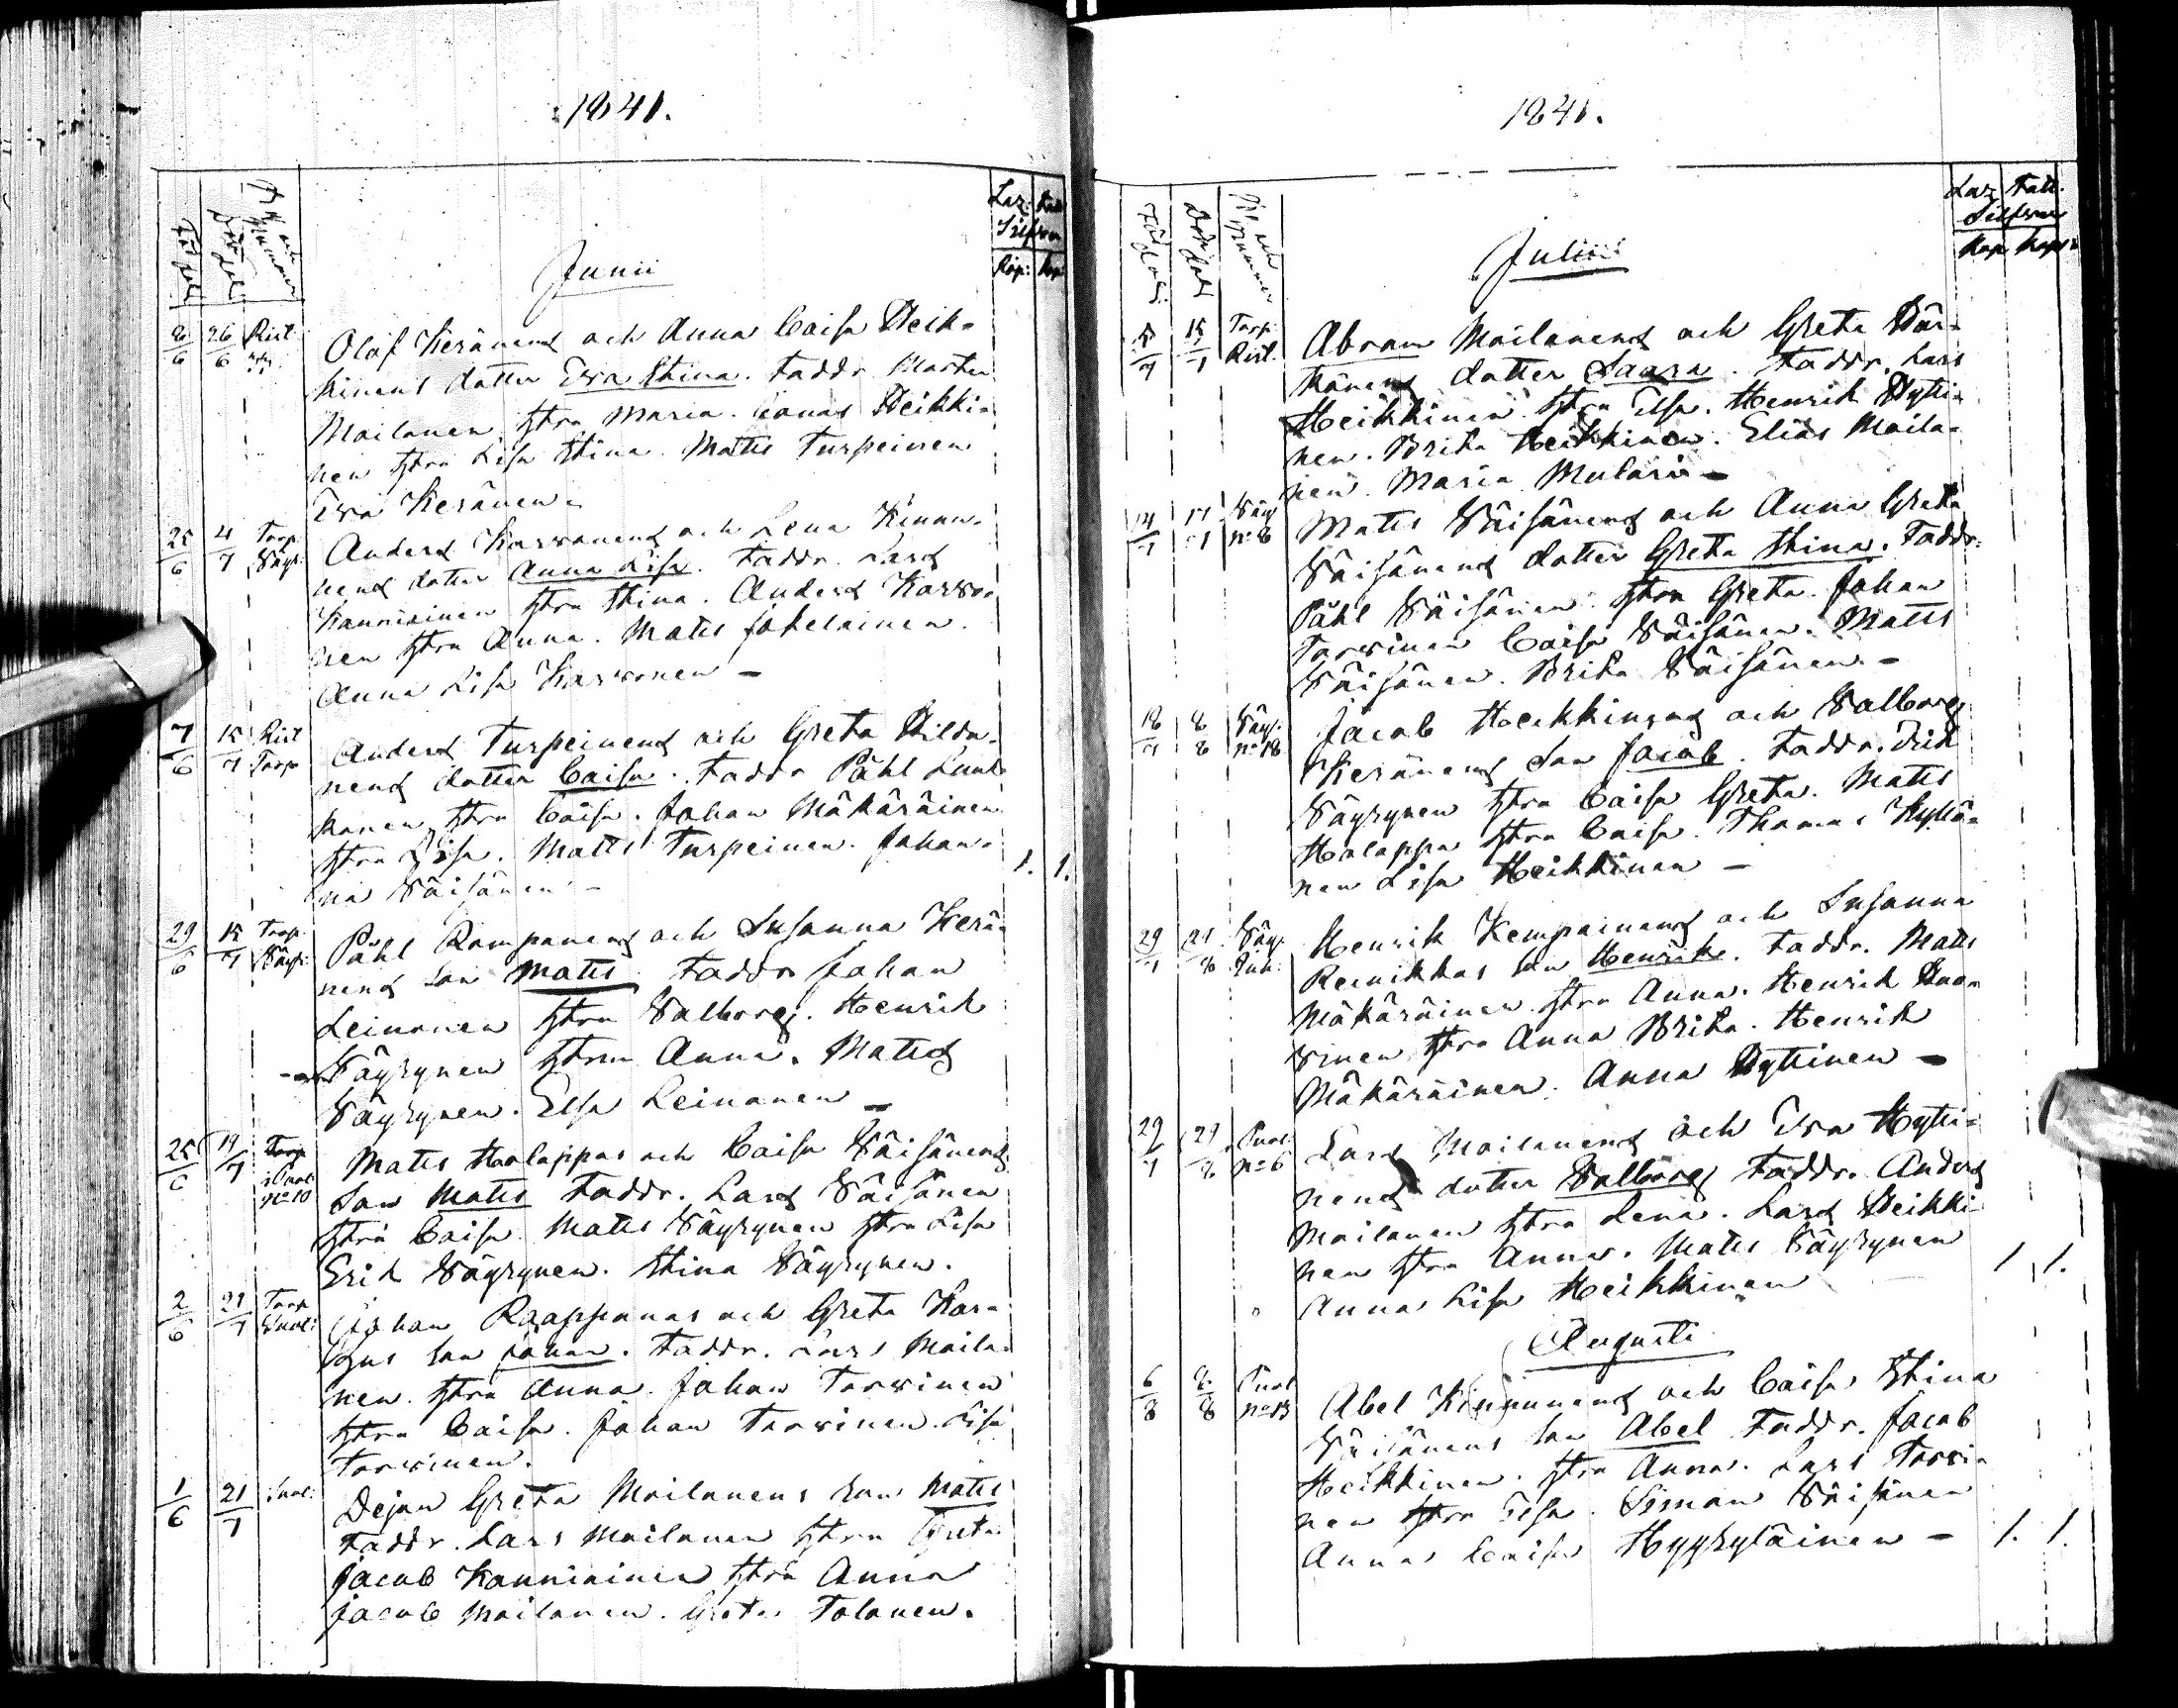 1841.
Laz: Fatt
Silfver
Kop: Kop:
Född
Döpt
By och Nummer
Junii
6/6 26/6 Rist: Olof Keränens och Anna Caisa Heik-
kinens dotter Ewa Stina. Faddr Marten
Moilanen, hstru Maria. Jonas Heikki-
nen hstru Lisa Stina. Matts Turpeinen
Ewa Keränen.
25/6 4/7 Torp. Väyr: Anders Karvonens och Lena Kinnu-
nens dotter Anna Lisa. Faddr. Lars
Kanniainen hstru Stina. Anders Karvo-
nen hstru Anna. Matts Jokelainen.
Anna Lisa Karvonen –
7/6 15/7 Rist Torp Anders Turpeinens och Greta Hildu-
nens dotter Caisa. Faddr Påhl Lunk-
kanen, hstru Caisa. Johan Mäkäräinen
hstru Lisa. Matts Turpeinen. Johan-
na Väisänen – 1. 1.
29/6 15/7 Torp. Väyr: Påhl Rompanens och Susanna Kerä-
nens son Matts. Faddr Johan
Leinonen hstru Valborg. Henrik
Väyrynen hstru Anna. Matts
Väyrynen. Elsa Leinonen –
25/6 19/7 Torp i Puol: No 10 Matts Halappas och Caisa Väisänens
Son Matts Faddr. Lars Väisänen
hstru Caisa. Matts Väyrynen hstru Lisa
Erik Väyrynen. Stina Väyrynen.
2/6 21/7 Torp Puol: Johan Raappanas och Greta Kor-
hus son Johan. Faddr. Lars Moila-
nen. hstru Anna. Johan Torvinen
hstru Caisa. Johan Torvinen. Lisa
Torvinen.
1/6 21/7 Puol: Dejan Greta Moilanens son Matts
Faddr. Lars Moilanen hstru Greta
Jacob Kanniainen hstru Anna
Jacob Moilanen. Greta Tolonen.
1841.
Laz Fatt.
Silfver
Kop Kop:
Född
Döpt
By och Nummer
Julii
5/7 15/7 Torp: Rist. Abram Moilanens och Greta Här-
könens dotter Saara. Faddr. Lars
Heikkinen hstru Elsa. Henrik Hytti-
nen. Brita Heikkinen. Elias Moila-
nen. Maria Mulari –
14/7 17/7 Väyr No 8 Matts Väisänens och Anna Greta
Väisänens dotter Greta Stina. Faddr:
Påhl Väisänen hstru Greta. Johan
Torvinen Caisa Väisänen. Matts
Väisänen. Brita Väisänen –
18/7 8/8 Väyr: No 18 Jacob Heikkinens och Valborg
Keränens Son Jacob. Faddr. Erik
Väyrynen hstru Caisa Greta. Matts
Halappa hstru Caisa. Thomas Kyllö-
nen Lisa Heikkinen –
29/7 21/8 Väyr Henrik Kempainens och Susanna
Reinikkas son Henrik. Faddr. Matts
Mäkäräinen hstru Anna. Henrik
vinen hstru Anna Brita. Henrik
Mäkäräinen. Anna Hyttinen –
29/7 29/8 Puol: No 6 Lars Moilanens och Ewa Hytti-
nens dotter Valborg Faddr. Anders
Moilanen hstru Lena. Lars Heikki
nen hstru Anna. Matts Väyrynen
Anna Lisa Heikkinen 1. 1.
Augusti
6/8 8/8 Puol No 13 Abel Kinnunens och Caisa Stina
Väisänens son Abel Faddr. Jacob
Heikkinen. hstru Anna. Lars Torvi-
nen hstru Elsa. Simon Väisänen
Anna Caisa Hyyryläinen – 1. 1.